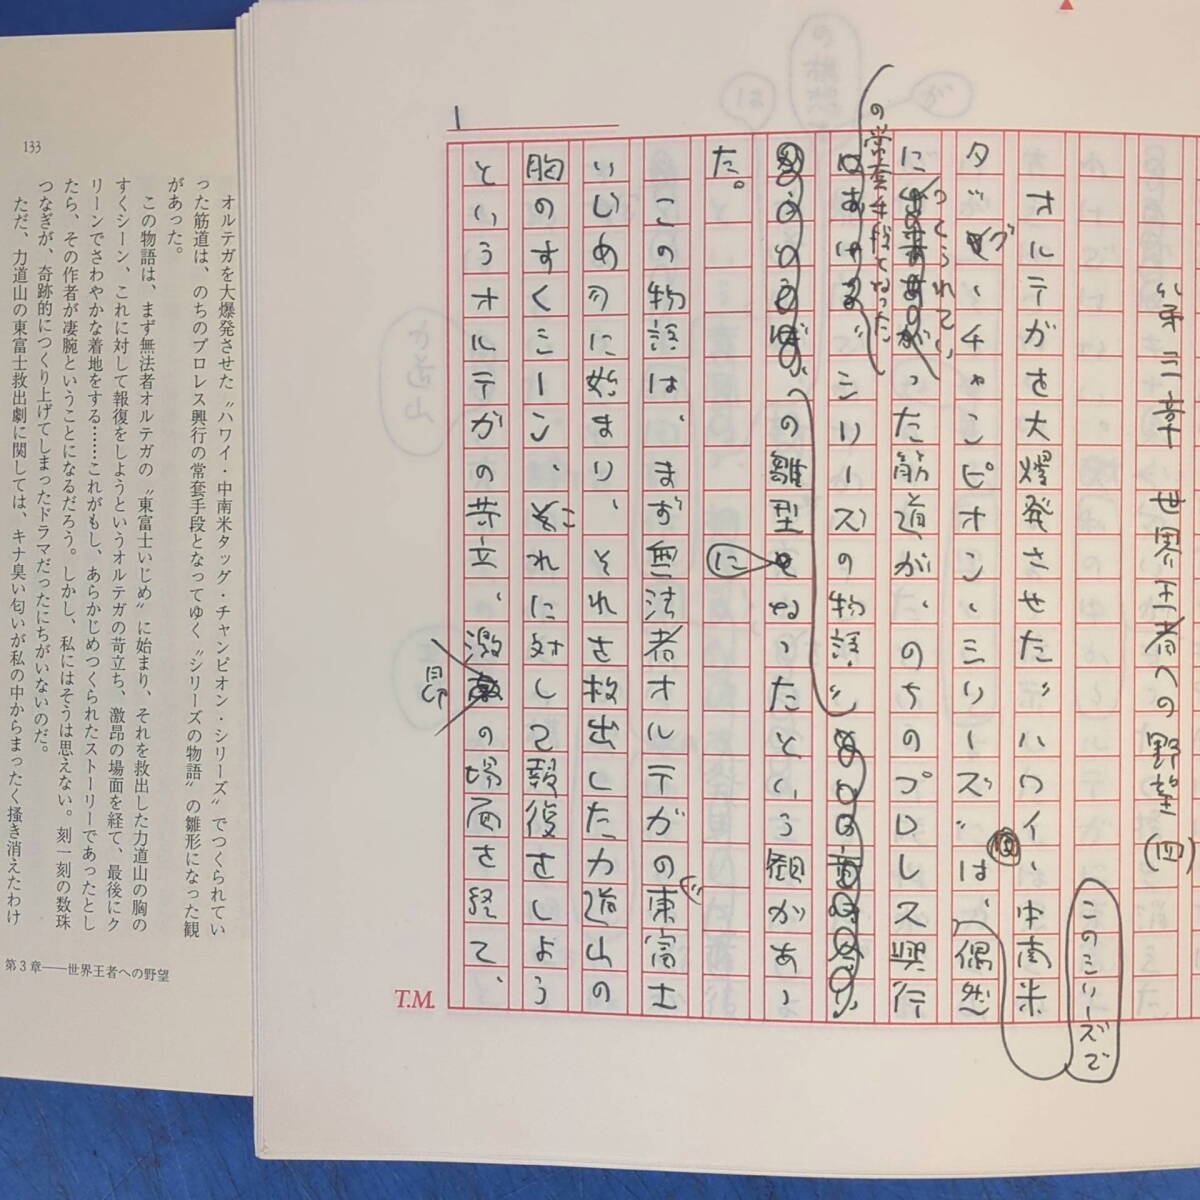 第三章 世界王者への野望(四)
このシリーズで
オルテガを大爆発させた〝ハワイ、中南米
タッグ、チャンピオン、シリーズ〟は、偶然
につくられていった筋道が、のちのプロレス興行
の常套手段となった
〝シリーズの物語〟
の雛型になったという観があっ
た。
この物語は、まず無法者オルテガの〝東富士
いじめ〟に始まり、それを救出した力道山の
胸のすくシーン、これに対して報復をしよう
というオルテガの苛立、激昂の場面を経て、
1
T.M.
133
オルテガを大爆発させた〝ハワイ・中南米タッグ・チャンピオン・シリーズ〟でつくられてい
った筋道は、のちのプロレス興行の常套手段となってゆく〝シリーズの物語〟の雛形になった観
があった。
この物語は、まず無法者オルテガの〝東富士いじめ〟に始まり、それを救出した力道山の胸の
すくシーン、これに対して報復をしようというオルテガの苛立ち、激昂の場面を経て、最後にク
リーンでさわやかな着地をする……これがもし、あらかじめつくられたストーリーであったとし
たら、その作者が凄腕ということになるだろう。しかし、私にはそうは思えない。刻一刻の数珠
つなぎが、奇跡的につくり上げてしまったドラマだったにちがいないのだ。
ただ、力道山の東富士救出劇に関しては、キナ臭い匂いが私の中からまったく掻き消えたわけ
第3章――世界王者への野望